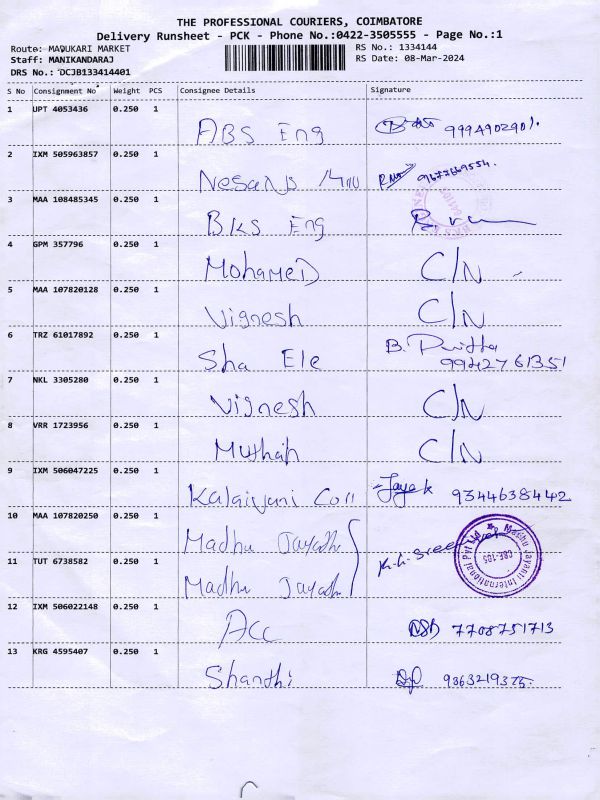 THE PROFESSIONAL COURIERS, COIMBATORE
Delivery Runsheet - PCK - Phone No.:0422-3505555 - Page No.:1
Route: MADUKARI MARKET
RS No.: 1334144
Staff: MANIKANDARAJ
RS Date: 08-Mar-2024
DRS No.: DCJB133414401
S No Consignment No Weight PCS Consignee Details Signature
1 UPT 4053436 0.250 1
ABS Eng
2 IXM 505963857 0.250 1
Nesans
3 MAA 108485345 0.250 1
BKS Eng
4 GPM 357796 0.250 1
Mohamed C/N
5 MAA 107820128 0.250 1
Vignesh C/N
6 TRZ 61017892 0.250 1
Sha Ele B. 9942761351
7 NKL 3305280 0.250 1
Vignesh C/N
8 VRR 1723956 0.250 1
Muthiah C/N
9 IXM 506047225 0.250 1
Kalaivani Coll 9344638442
10 MAA 107820250 0.250 1
Madhu Jayadhi
Madhu Jayanti International Pvt Ltd
CBE-105
11 TUT 6738582 0.250 1
Madhu Jayadhi
12 IXM 506022148 0.250 1
ACC 7708751713
13 KRG 4595407 0.250 1
Shanthi 9863219375